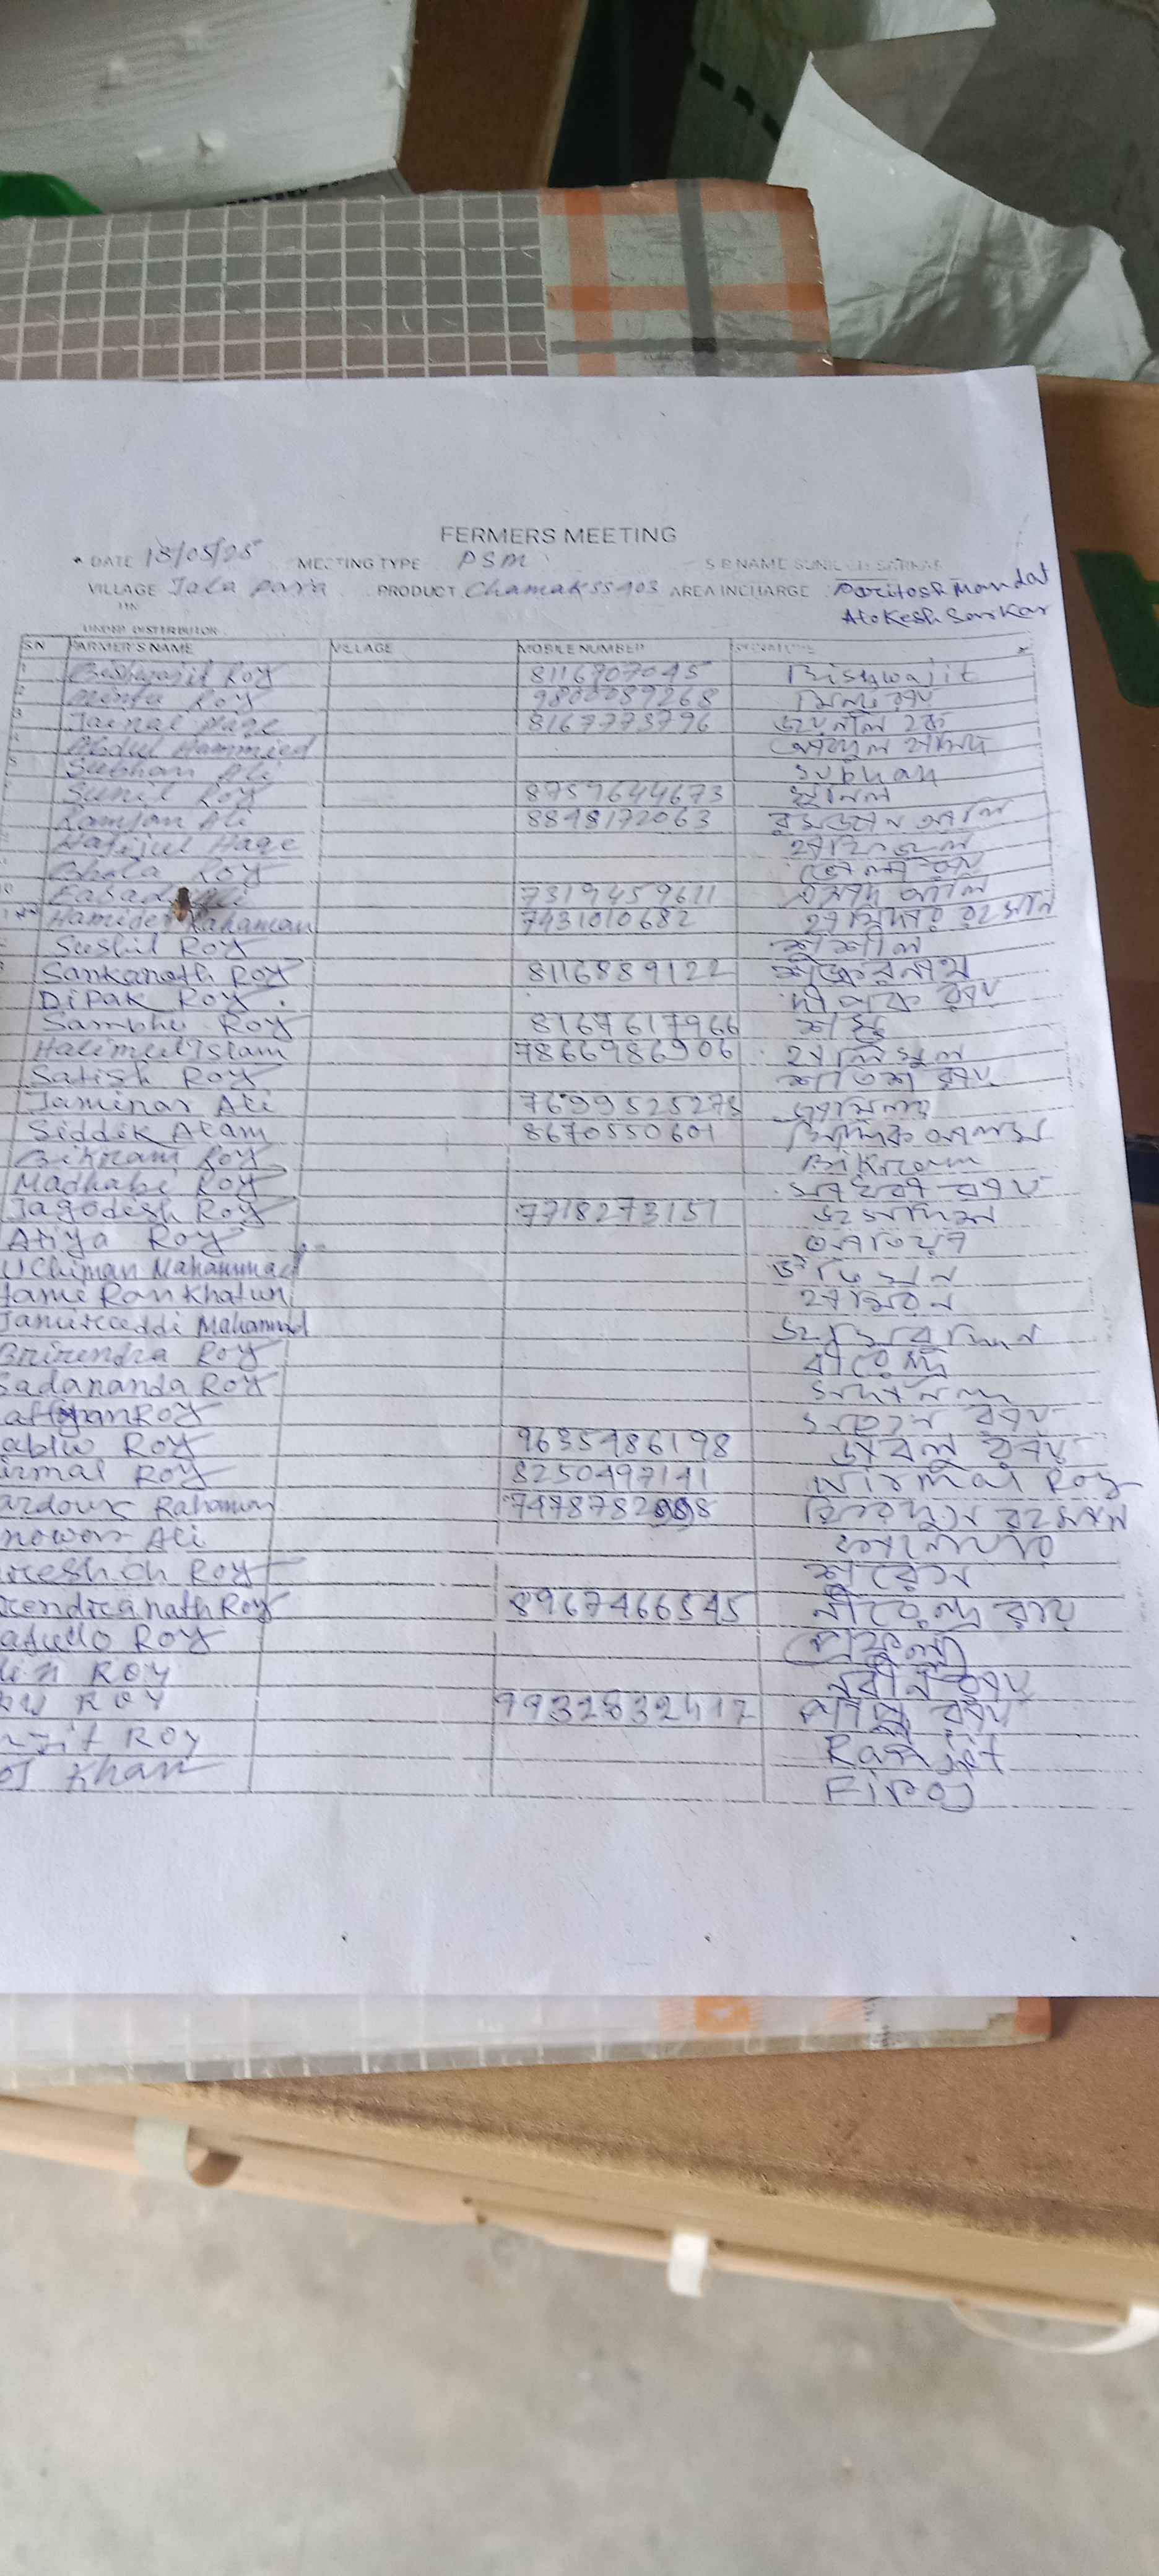 FERMERS MEETING
DATE 18/05/25 MEETING TYPE PSM S R NAME SUNIL CH SARKAR
VILLAGE Jala para PRODUCT Chamak SS 903 AREA INCHARGE Paritosh Mandal
Alokesh Sarkar
UNDER DISTRIBUTOR
S.N FARMER'S NAME VILLAGE MOBILE NUMBER SIGNATURE
1 Bishwajit Roy 8116707045 Bishwajit
2 Mintu Roy 9800089268 মিন্টু রায়
3 Jainal Haqe 8167773796 জয়নাল হক
4 Abdul Hammied
5 Subhan Ali Subhan
Sunil Roy 8759644673 সুনিল
Ramjan Ali 8898172063 রমজান আলি
Hafijul Haqe
Bhola Roy
10 7319459611
Hamider Rahaman 7431010682 হামিদার রহমান
Sushil Roy সুশীল
Sankanath Roy 8116889122
Dipak Roy দীপক রায়
Sambhu Roy 8167617966 শম্ভু
Halimul Islam 7866986906 হালিমুল
Satish Roy সতিশ রায়
Jaminar Ali 7699525278 জামিনার
Siddik Alam 8670550601 সিদ্দিক আলম
Bikram Roy Bikram
Madhabi Roy মাধবী রায়
Jagodesh Roy 7718273151 জগদিশ
Atiya Roy
Uchiman Mahammad
Jamiruddi Mahammad
Birendra Roy বীরেন্দ্র
Sadananda Roy সদানন্দ
Roy রায়
ablu Roy 9635986198 রায়
irmal Roy 8250497141 Nirmal Roy
ardous Rahaman 7478782
nowar Ali
resh ch Roy সুরেশ
rendranath Roy 8967466545 বীরেন্দ্র রায়
afullo Roy প্রফুল্ল
bin Roy নবীন রায়
Roy 9932832417 রায়
njit Roy Ranjit
oj Khan Firoj